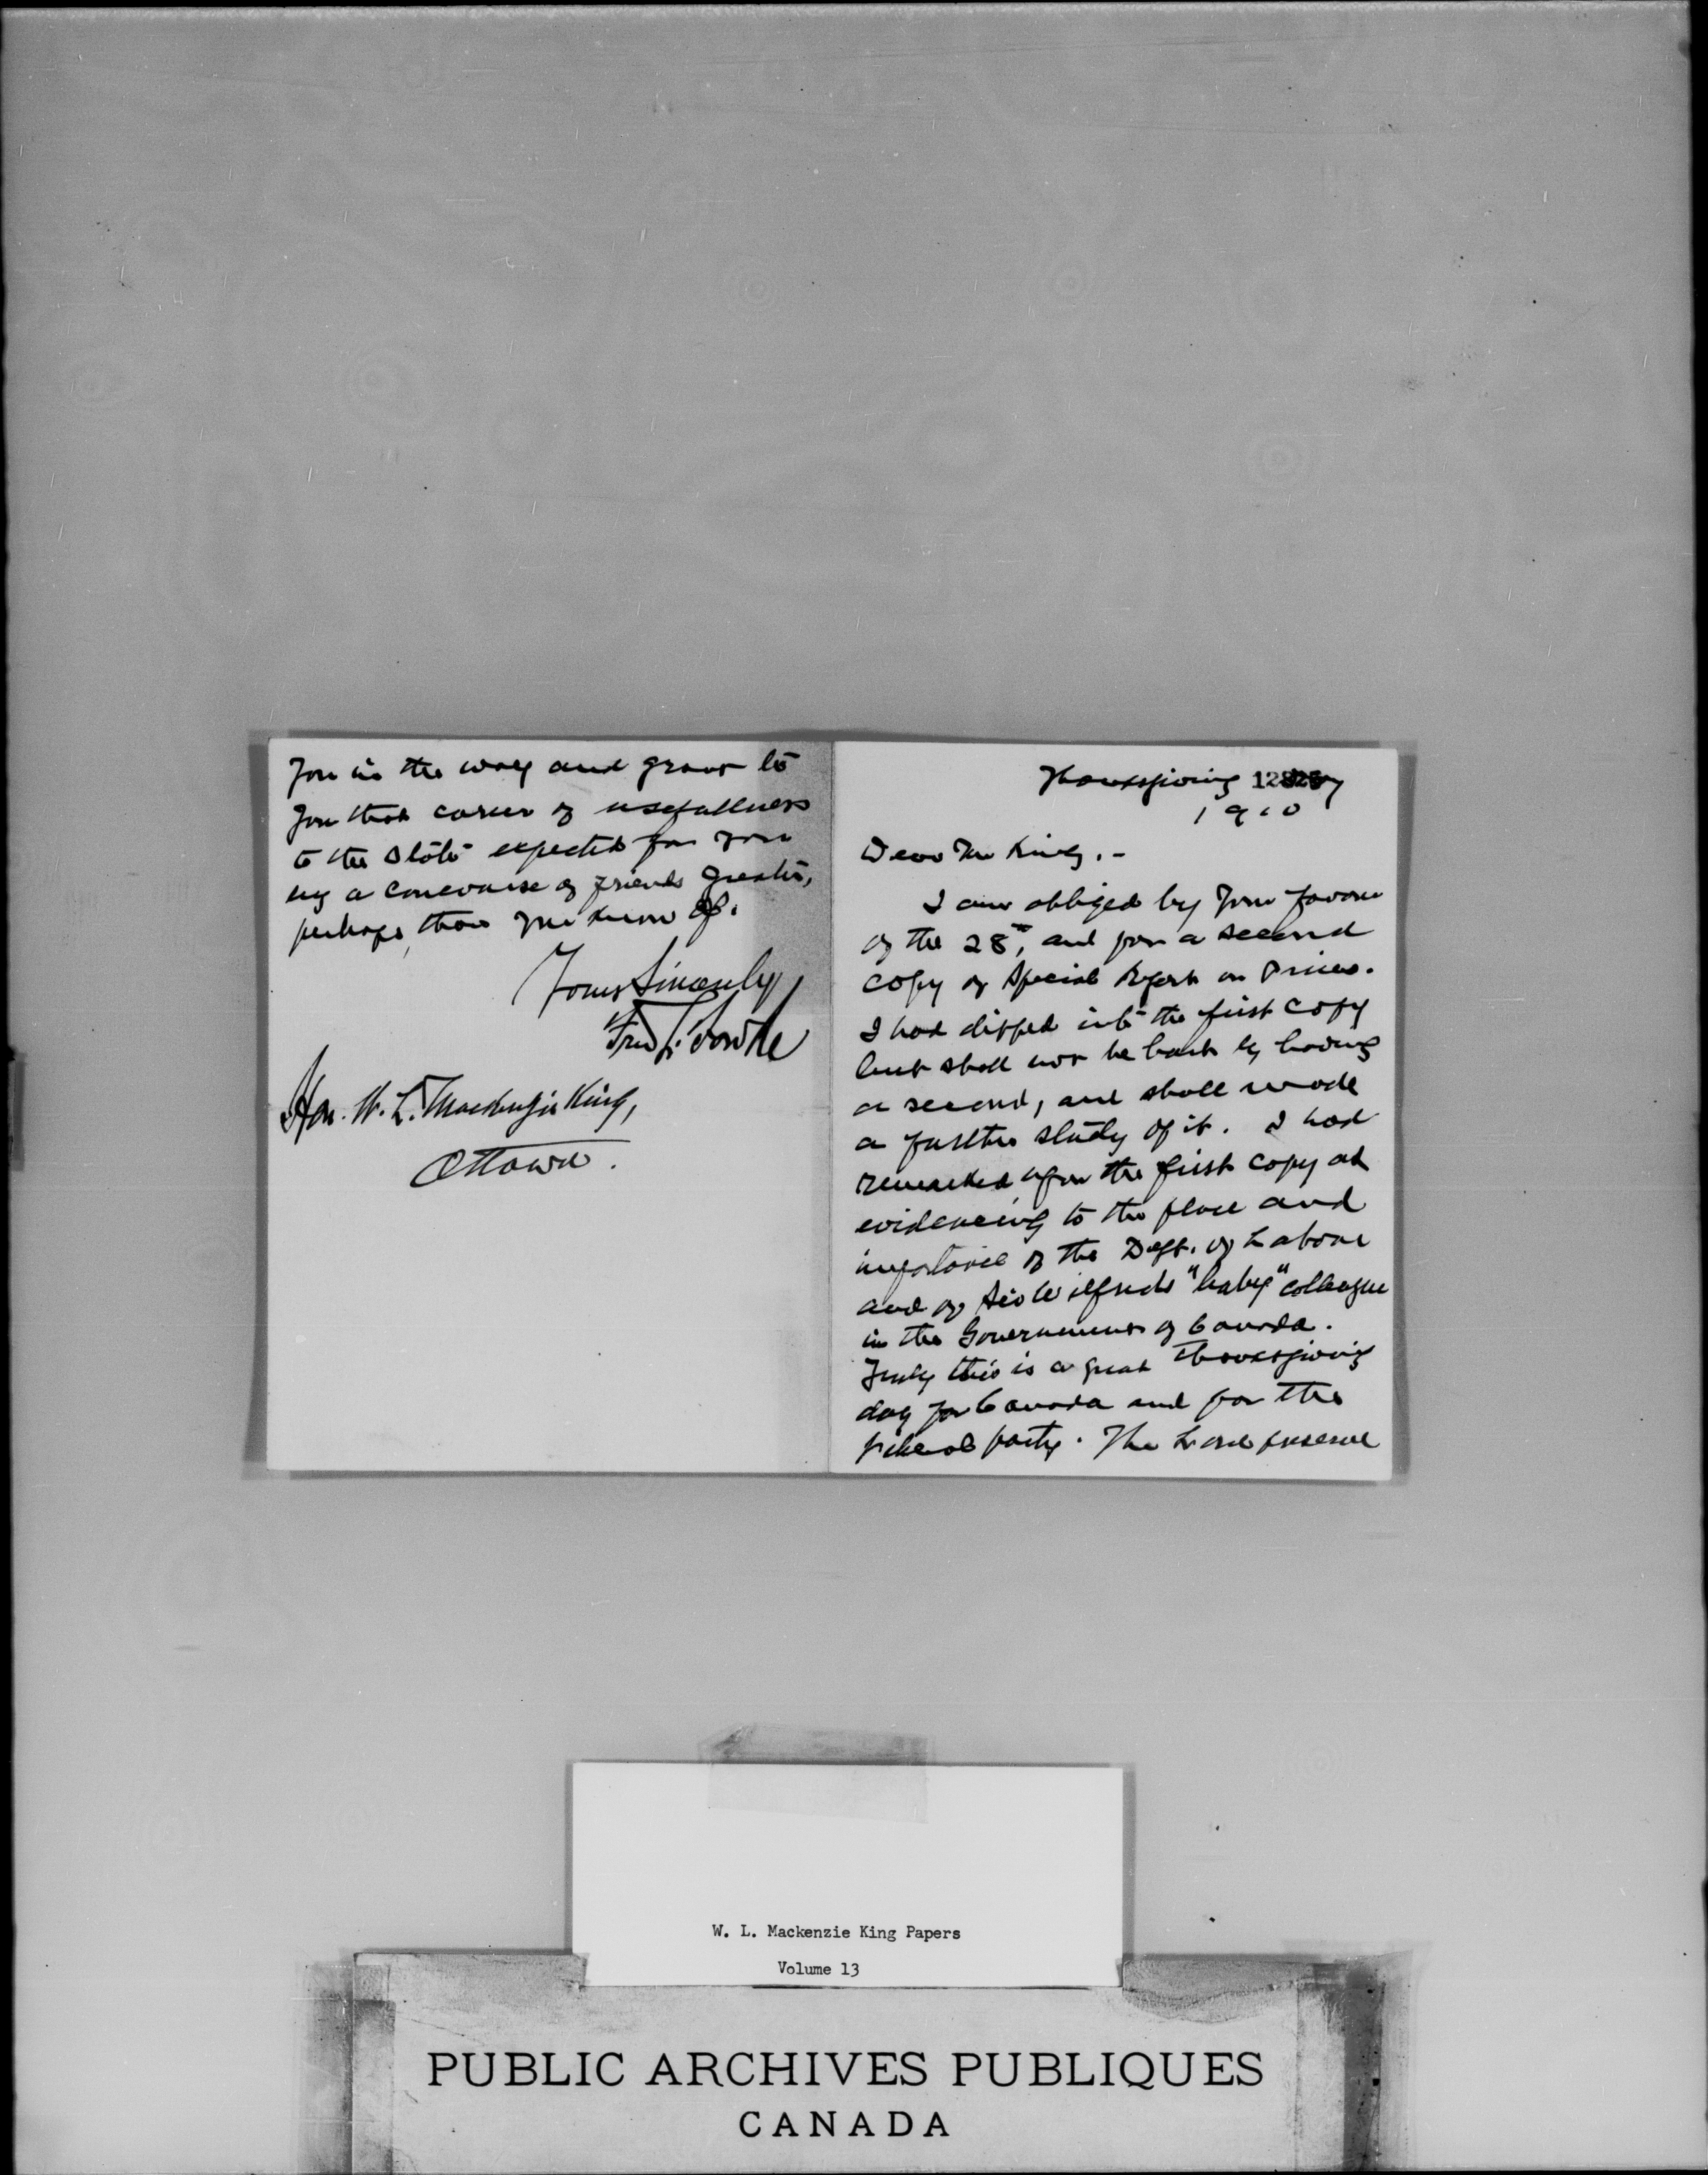 Thanksgiving Day
1910
Dear Mr King,-
I am obliged by your favour
of the 28th, and for a second
copy of Special Report on Prices.
I had dipped into the first copy
but shall not be hurt by having
a second, and shall make
a further study of it. I had
remarked upon the first copy as
evidencing to the place and
importance of the Dept. of Labour
and of Sir Wilfrids "baby" colleague
in the Government of Canada.
Truly this is a great Thanksgiving
day for Canada and for the
liberal party. The Lord preserve
you in the way and grant to
you that career of usefullness
to the State expected for you
by a concourse of friends greater,
perhaps, than you know of.
Yours Sincerely
Fred
Hon. W. L. Mackenzie King,
Ottawa.
W. L. Mackenzie King Papers
Volume 13
PUBLIC ARCHIVES PUBLIQUES
CANADA